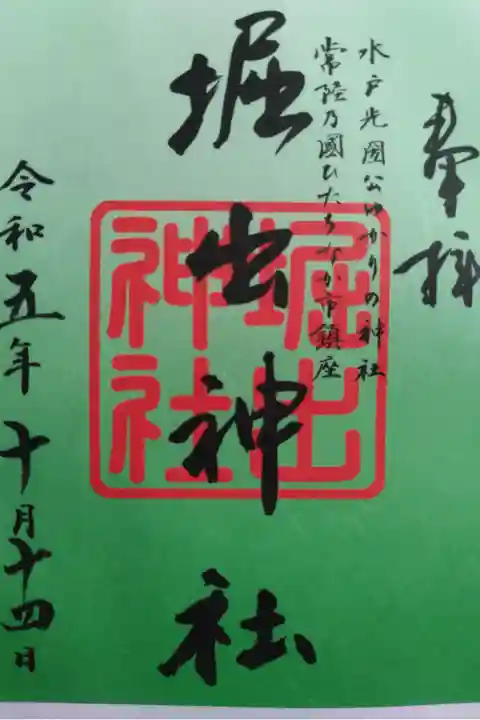 奉拝
水戸光圀公ゆかりの神社
常陸乃國ひたちなか市鎮座
堀出神社
堀出
神社
令和五年十月十四日